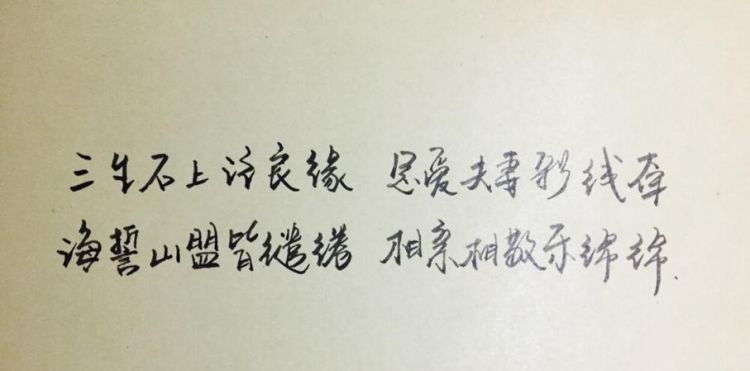 三生石上注良缘 恩爱夫妻彩线牵
海誓山盟皆缱绻 相亲相敬乐绵绵.